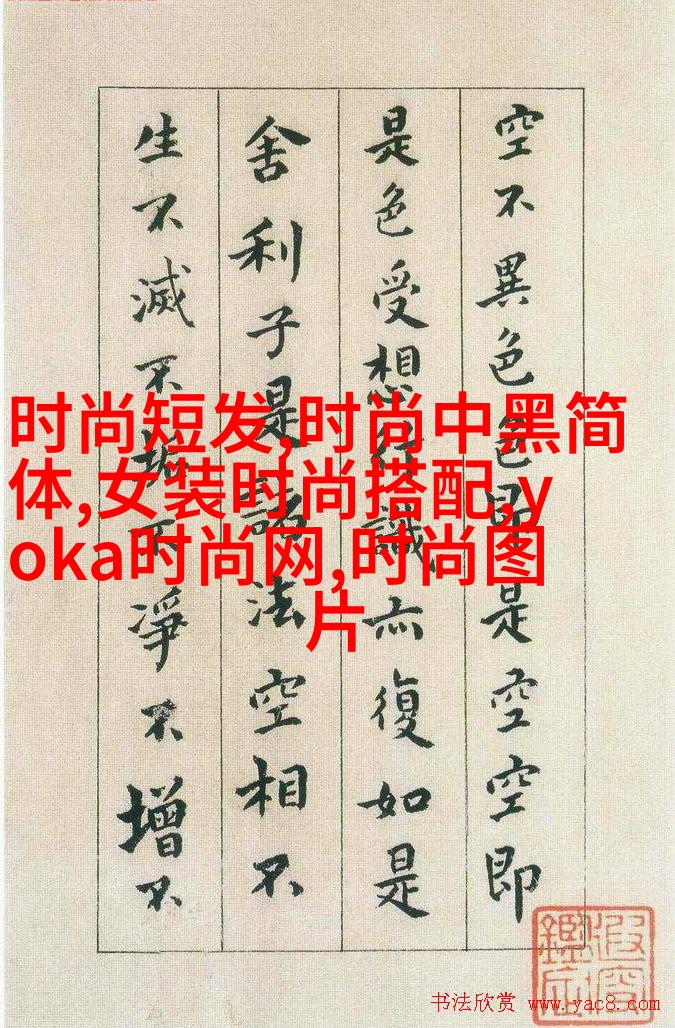 空不異色色即是空空即
是色受想行識亦復如是
舍利子是諸法空相不
生不滅不垢不淨不增不
时尚短发,时尚中黑简
体,女装时尚搭配,y
oka时尚网,时尚图
片
书法欣赏 www.yac8.com